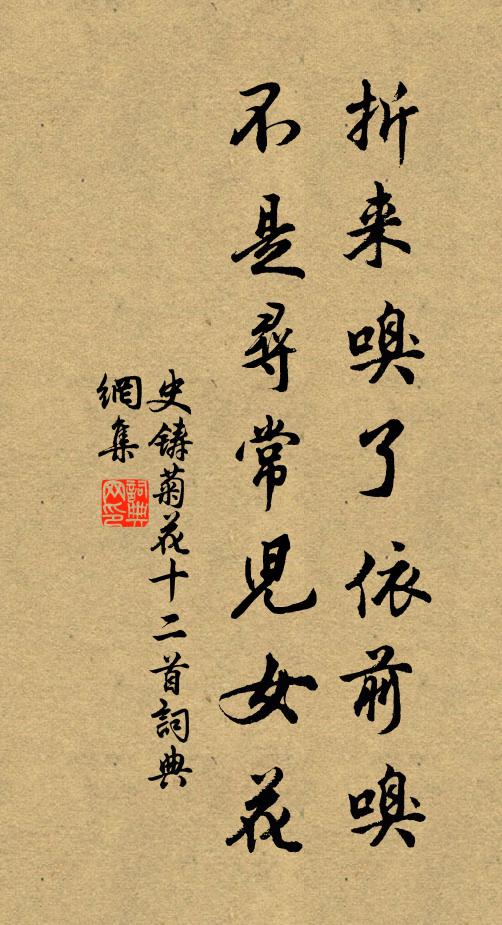 折来嗅了依前嗅
不是尋常児女花
史鋳菊花十二首詞典
網集
詞典
网印